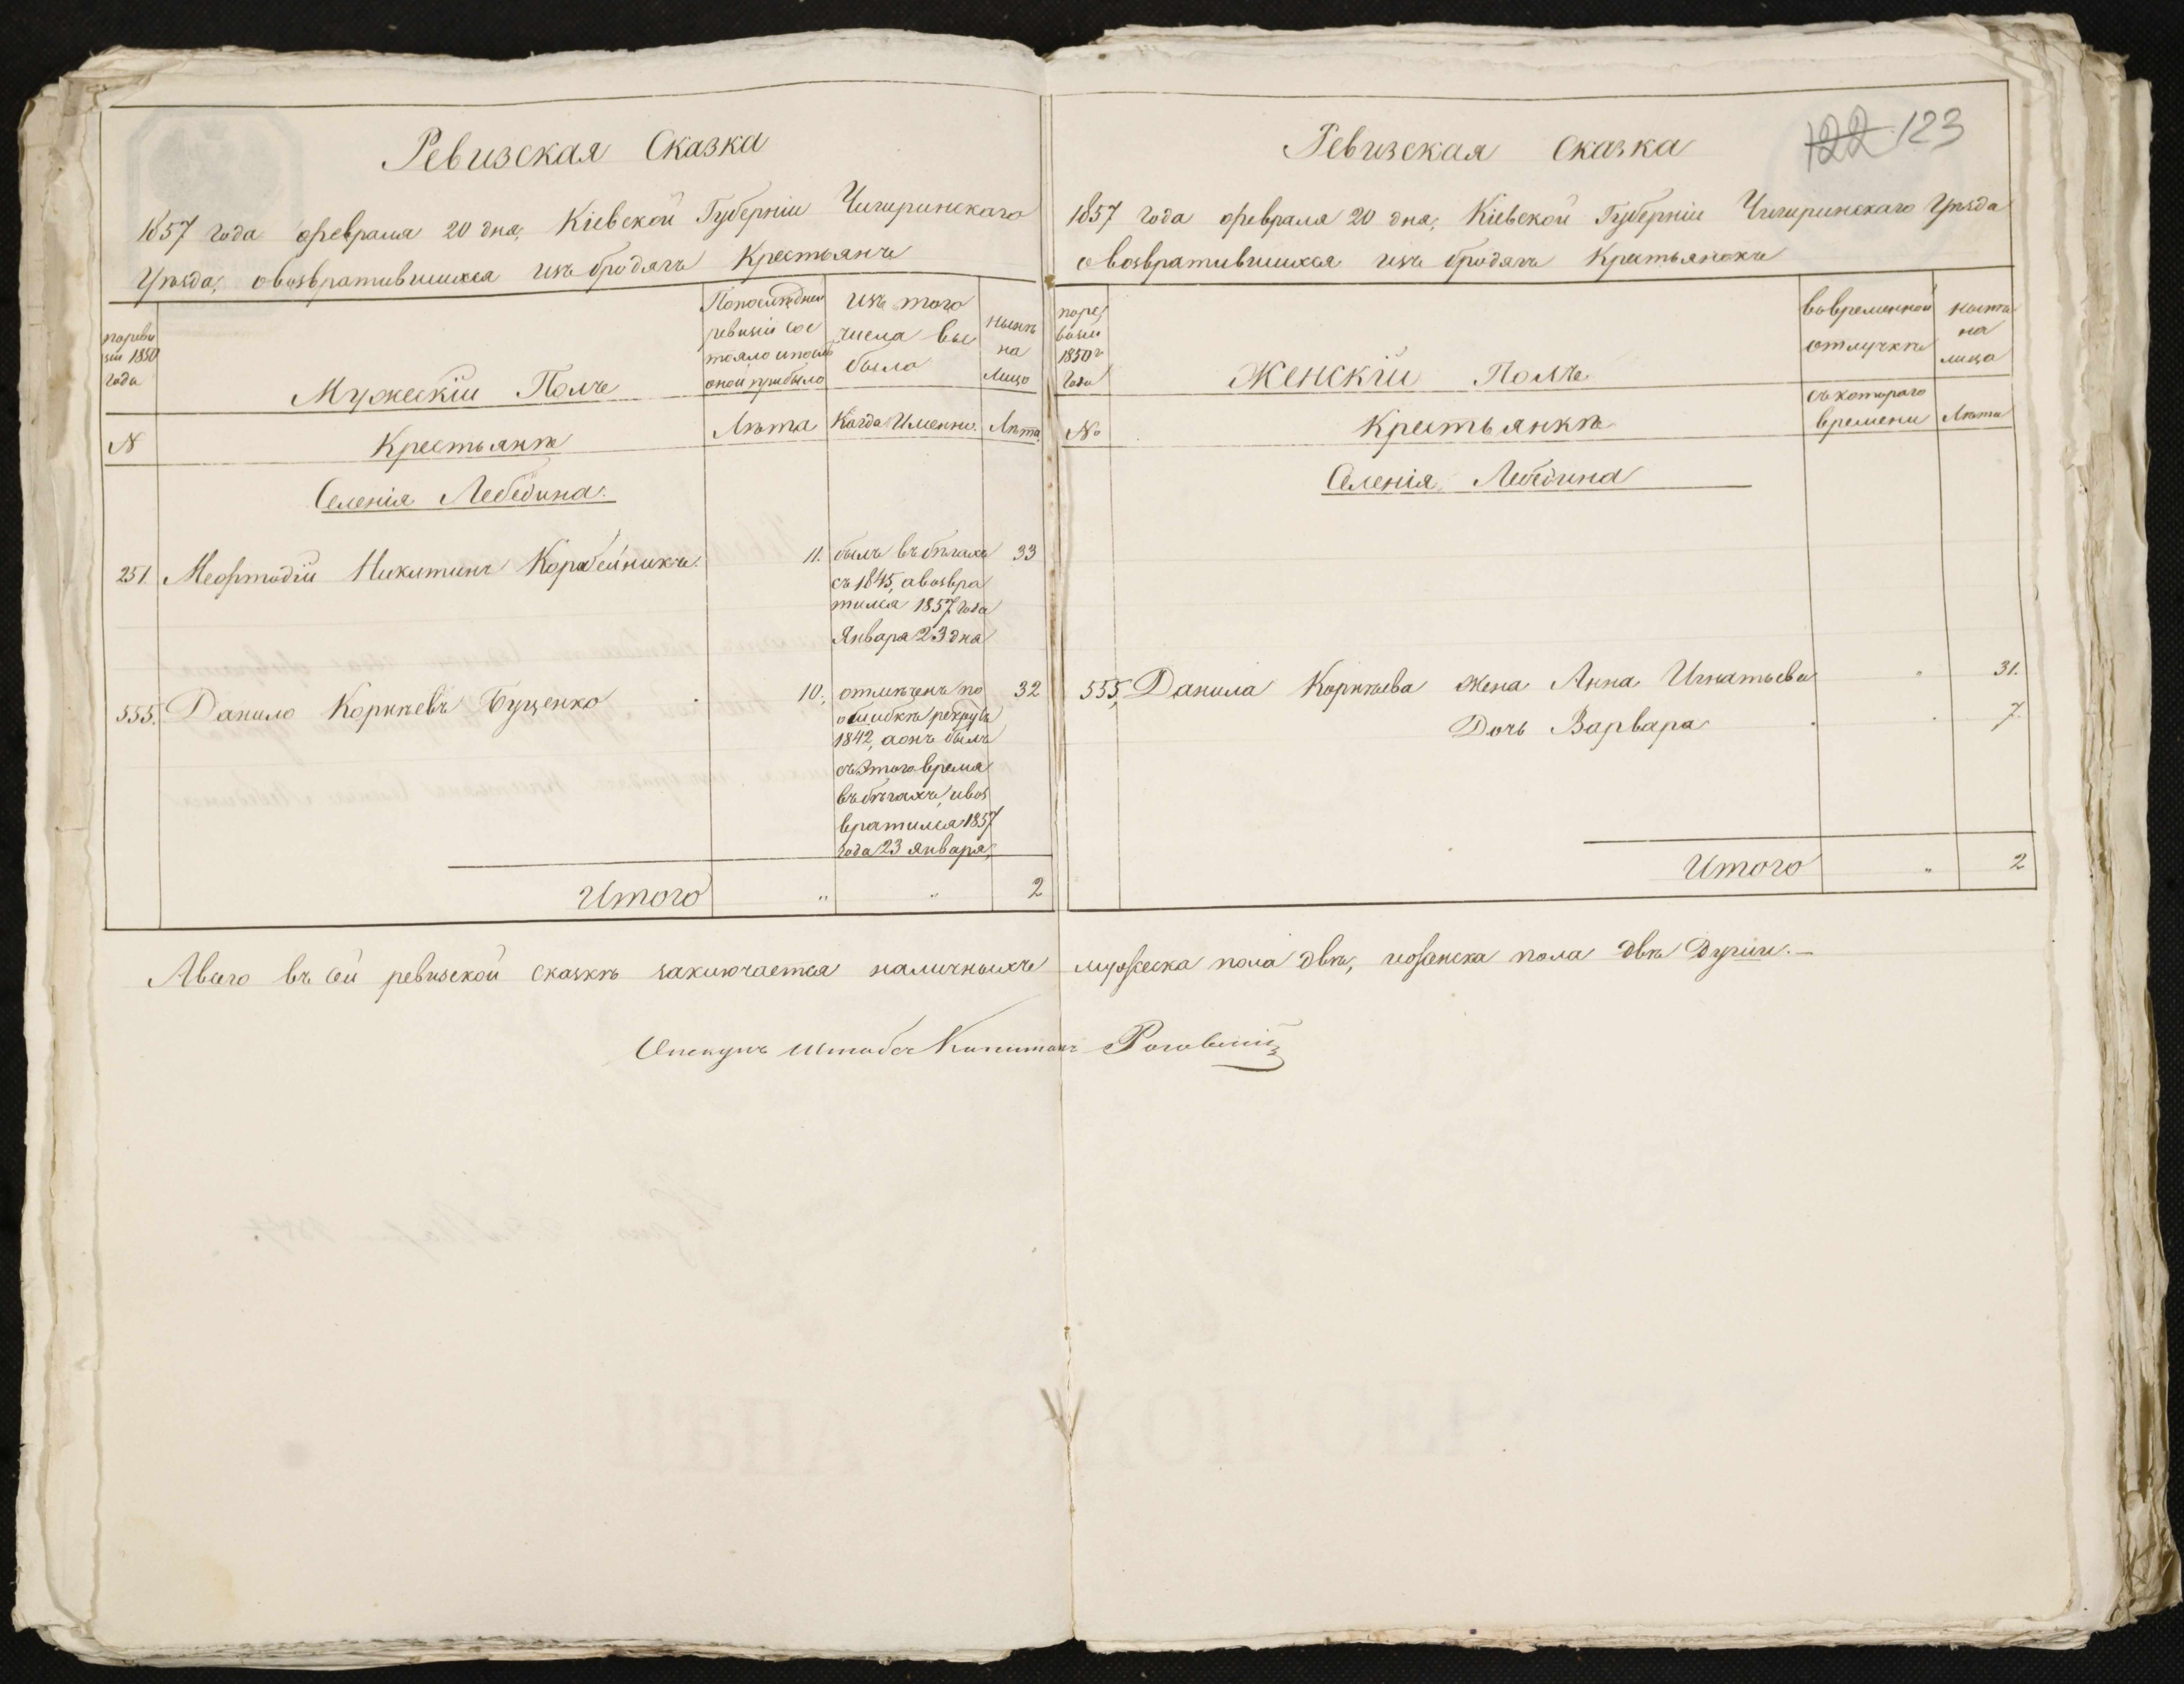 Ревизская Сказка
1857 года февраля 20 дня, Кіевской Губерніи Чигиринскаго
Уѣзда, о возвратившихся изъ бродягъ Крестьянъ
по реви
зіи 1850
года
Мужескій Полъ
По последней
ревизіи сос
тояло и послѣ
оной прибыло
изъ того
числа вы
было
нынѣ
на
лицо
N
Крестьянѣ
Лѣта
Когда Именно.
Лѣта
Селенія Лебедина.
251. Мефтодій Никитинъ Коробейникъ. 11. былъ въ бѣгахъ 33
съ 1845, а возвра
тился 1857 года
Января 23 дня
555. Данило Корнѣевъ Буценко 10. отмѣченъ по 32
ошибкѣ рекрутъ
1842, а онъ былъ
съ этого время
въ бѣгахъ, и воз
вратился 1857
года 23 января,
Итого " " 2
Ревизская Сказка
122 123
1857 года февраля 20 дня, Кіевской Губерніи Чигиринскаго Уѣзда
о возвратившихся изъ бродягъ Крестьянокъ
по ре
визіи
1850 г
года
Женскій Полъ
во временной
отлучкѣ
нынѣ
на
лицо
№
Крестьянкѣ
съ котораго
времени
Лѣта
Селенія Лебедина
555, Данила Корнѣева жена Анна Игнатьева " 31.
Дочь Варвара " 7.
Итого " 2
А всего въ сей ревизской сказкѣ заключается наличныхъ мужеска пола двѣ, и женска пола двѣ Души.—
Опекунъ Штабсъ Капитанъ